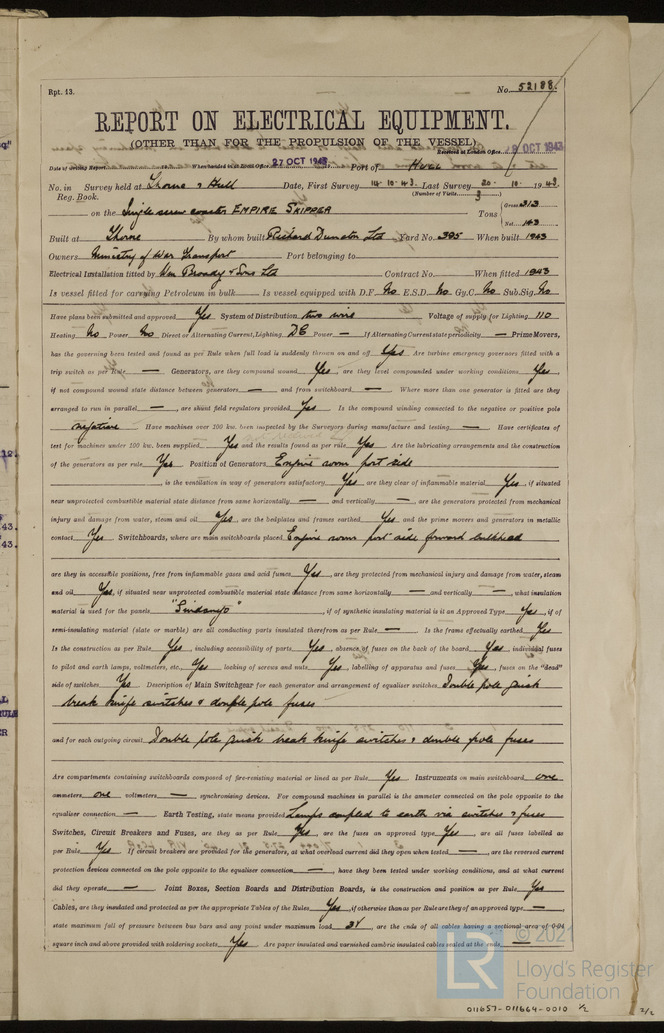 Rpt. 13. No. 52188.
REPORT ON ELECTRICAL EQUIPMENT.
(OTHER THAN FOR THE PROPULSION OF THE VESSEL).
Received at London Office 29 OCT 1943
Date of writing Report When handed in at Local Office 27 OCT 1943 Port of Hull
No. in Survey held at Thorne & Hull Date, First Survey 14.10.43. Last Survey 20. 10. 1943.
Reg. Book. (Number of Visits 3)
on the Single screw coaster EMPIRE SKIPPER Tons { Gross 313
Net 143
Built at Thorne By whom built Richard Dunston Ltd Yard No. 395 When built 1943
Owners Ministry of War Transport Port belonging to
Electrical Installation fitted by Wm Broady & Sons Ltd Contract No. When fitted 1943
Is vessel fitted for carrying Petroleum in bulk Is vessel equipped with D.F. No E.S.D. No Gy.C. No Sub.Sig. No
Have plans been submitted and approved Yes System of Distribution two wire Voltage of supply for Lighting 110
Heating No Power No Direct or Alternating Current, Lighting DC Power — If Alternating Current state periodicity — Prime Movers,
has the governing been tested and found as per Rule when full load is suddenly thrown on and off Yes Are turbine emergency governors fitted with a
trip switch as per Rule — Generators, are they compound wound Yes, are they level compounded under working conditions Yes,
if not compound wound state distance between generators — and from switchboard — Where more than one generator is fitted are they
arranged to run in parallel —, are shunt field regulators provided Yes Is the compound winding connected to the negative or positive pole
negative Have machines over 100 kw. been inspected by the Surveyors during manufacture and testing — Have certificates of
test for machines under 100 kw. been supplied Yes and the results found as per rule Yes Are the lubricating arrangements and the construction
of the generators as per rule Yes Position of Generators Engine room port side
, is the ventilation in way of generators satisfactory Yes, are they clear of inflammable material Yes, if situated
near unprotected combustible material state distance from same horizontally — and vertically —, are the generators protected from mechanical
injury and damage from water, steam and oil Yes, are the bedplates and frames earthed Yes and the prime movers and generators in metallic
contact Yes Switchboards, where are main switchboards placed Engine room port side forward bulkhead
are they in accessible positions, free from inflammable gases and acid fumes Yes, are they protected from mechanical injury and damage from water, steam
and oil Yes, if situated near unprotected combustible material state distance from same horizontally — and vertically —, what insulation
material is used for the panels "Sindanyo", if of synthetic insulating material is it an Approved Type Yes, if of
semi-insulating material (slate or marble) are all conducting parts insulated therefrom as per Rule — Is the frame effectually earthed Yes
Is the construction as per Rule Yes, including accessibility of parts Yes, absence of fuses on the back of the board Yes, individual fuses
to pilot and earth lamps, voltmeters, etc. Yes locking of screws and nuts Yes, labelling of apparatus and fuses Yes, fuses on the "dead"
side of switches Yes Description of Main Switchgear for each generator and arrangement of equaliser switches Double pole quick
break knife switches & double pole fuses
and for each outgoing circuit Double pole quick break knife switches & double pole fuses
Are compartments containing switchboards composed of fire-resisting material or lined as per Rule Yes Instruments on main switchboard one
ammeters one voltmeters — synchronising devices. For compound machines in parallel is the ammeter connected on the pole opposite to the
equaliser connection — Earth Testing, state means provided Lamps coupled to earth via switches & fuses
Switches, Circuit Breakers and Fuses, are they as per Rule Yes, are the fuses an approved type Yes, are all fuses labelled as
per Rule Yes If circuit breakers are provided for the generators, at what overload current did they open when tested —, are the reversed current
protection devices connected on the pole opposite to the equaliser connection —, have they been tested under working conditions, and at what current
did they operate — Joint Boxes, Section Boards and Distribution Boards, is the construction and position as per Rule Yes
Cables, are they insulated and protected as per the appropriate Tables of the Rules Yes, if otherwise than as per Rule are they of an approved type —
state maximum fall of pressure between bus bars and any point under maximum load 3V, are the ends of all cables having a sectional area of 0·04
square inch and above provided with soldering sockets Yes Are paper insulated and varnished cambric insulated cables sealed at the ends —
LR © 2021
Lloyd's Register
Foundation
011657-011664-0010 ½
2/2